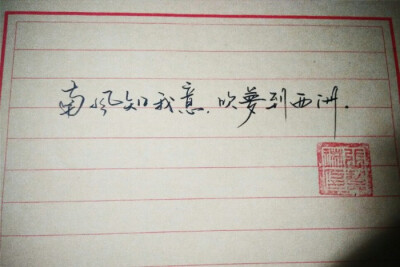 南风知我意，吹梦到西洲．